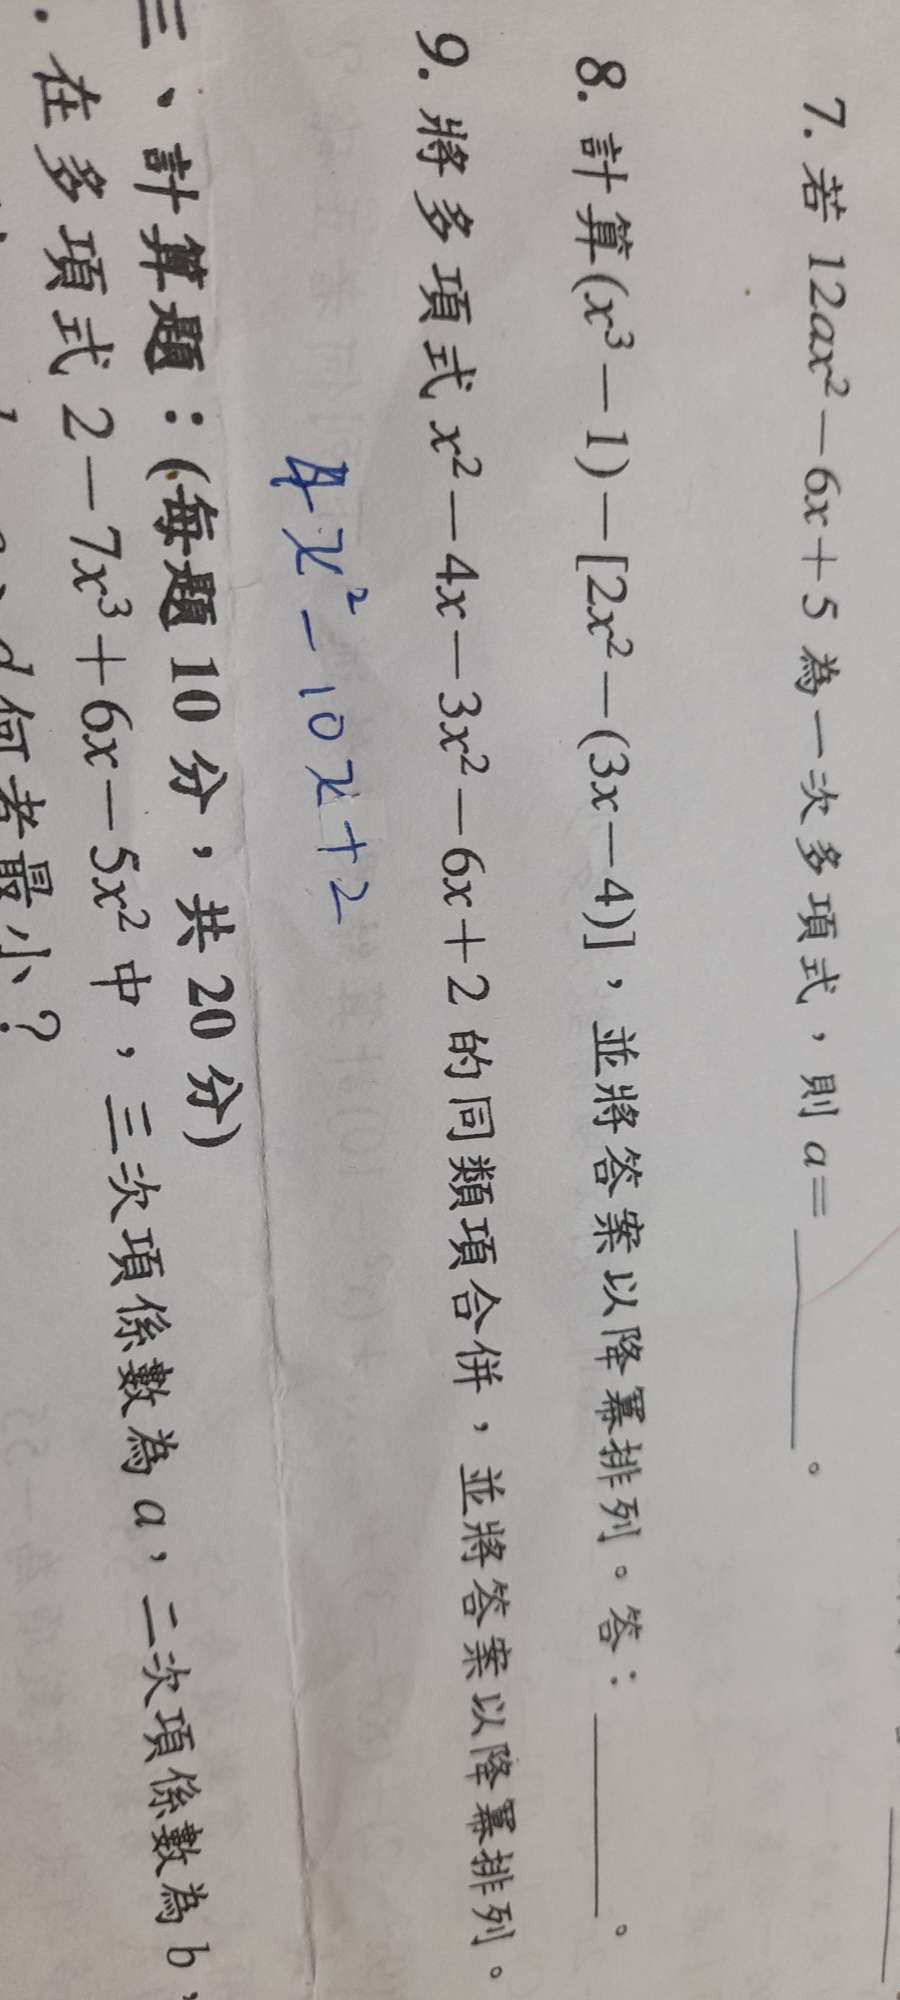 7. 若 12ax²－6x＋5 為一次多項式，則 a＝＿＿＿＿。
8. 計算(x³－1)－[2x²－(3x－4)]，並將答案以降冪排列。答：＿＿＿＿。
9. 將多項式 x²－4x－3x²－6x＋2 的同類項合併，並將答案以降冪排列。
4x²－10x＋2
三、計算題：(每題 10 分，共 20 分)
. 在多項式 2－7x³＋6x－5x² 中，三次項係數為 a，二次項係數為 b，
d 何者最小？